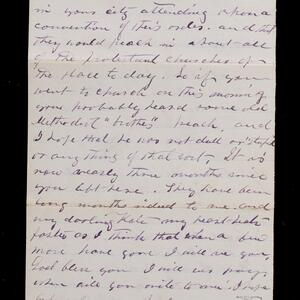 in your city attending upon a
convention of their order. and that
they would preach in about all
of the protestant churches of
the place to day. So if you
went to church on this morning
you probably heard some old
Methodist "brother" preach, and
I hope that he was not dull or stupid
or any thing of that sort, it is
now nearly three months since
you left here. They have been
long months indeed to me. and
my darling Kate my heart beats
faster as I think that when a few
more have gone I will see you,
God bless you I will ever pray
when will you write to me! I hope